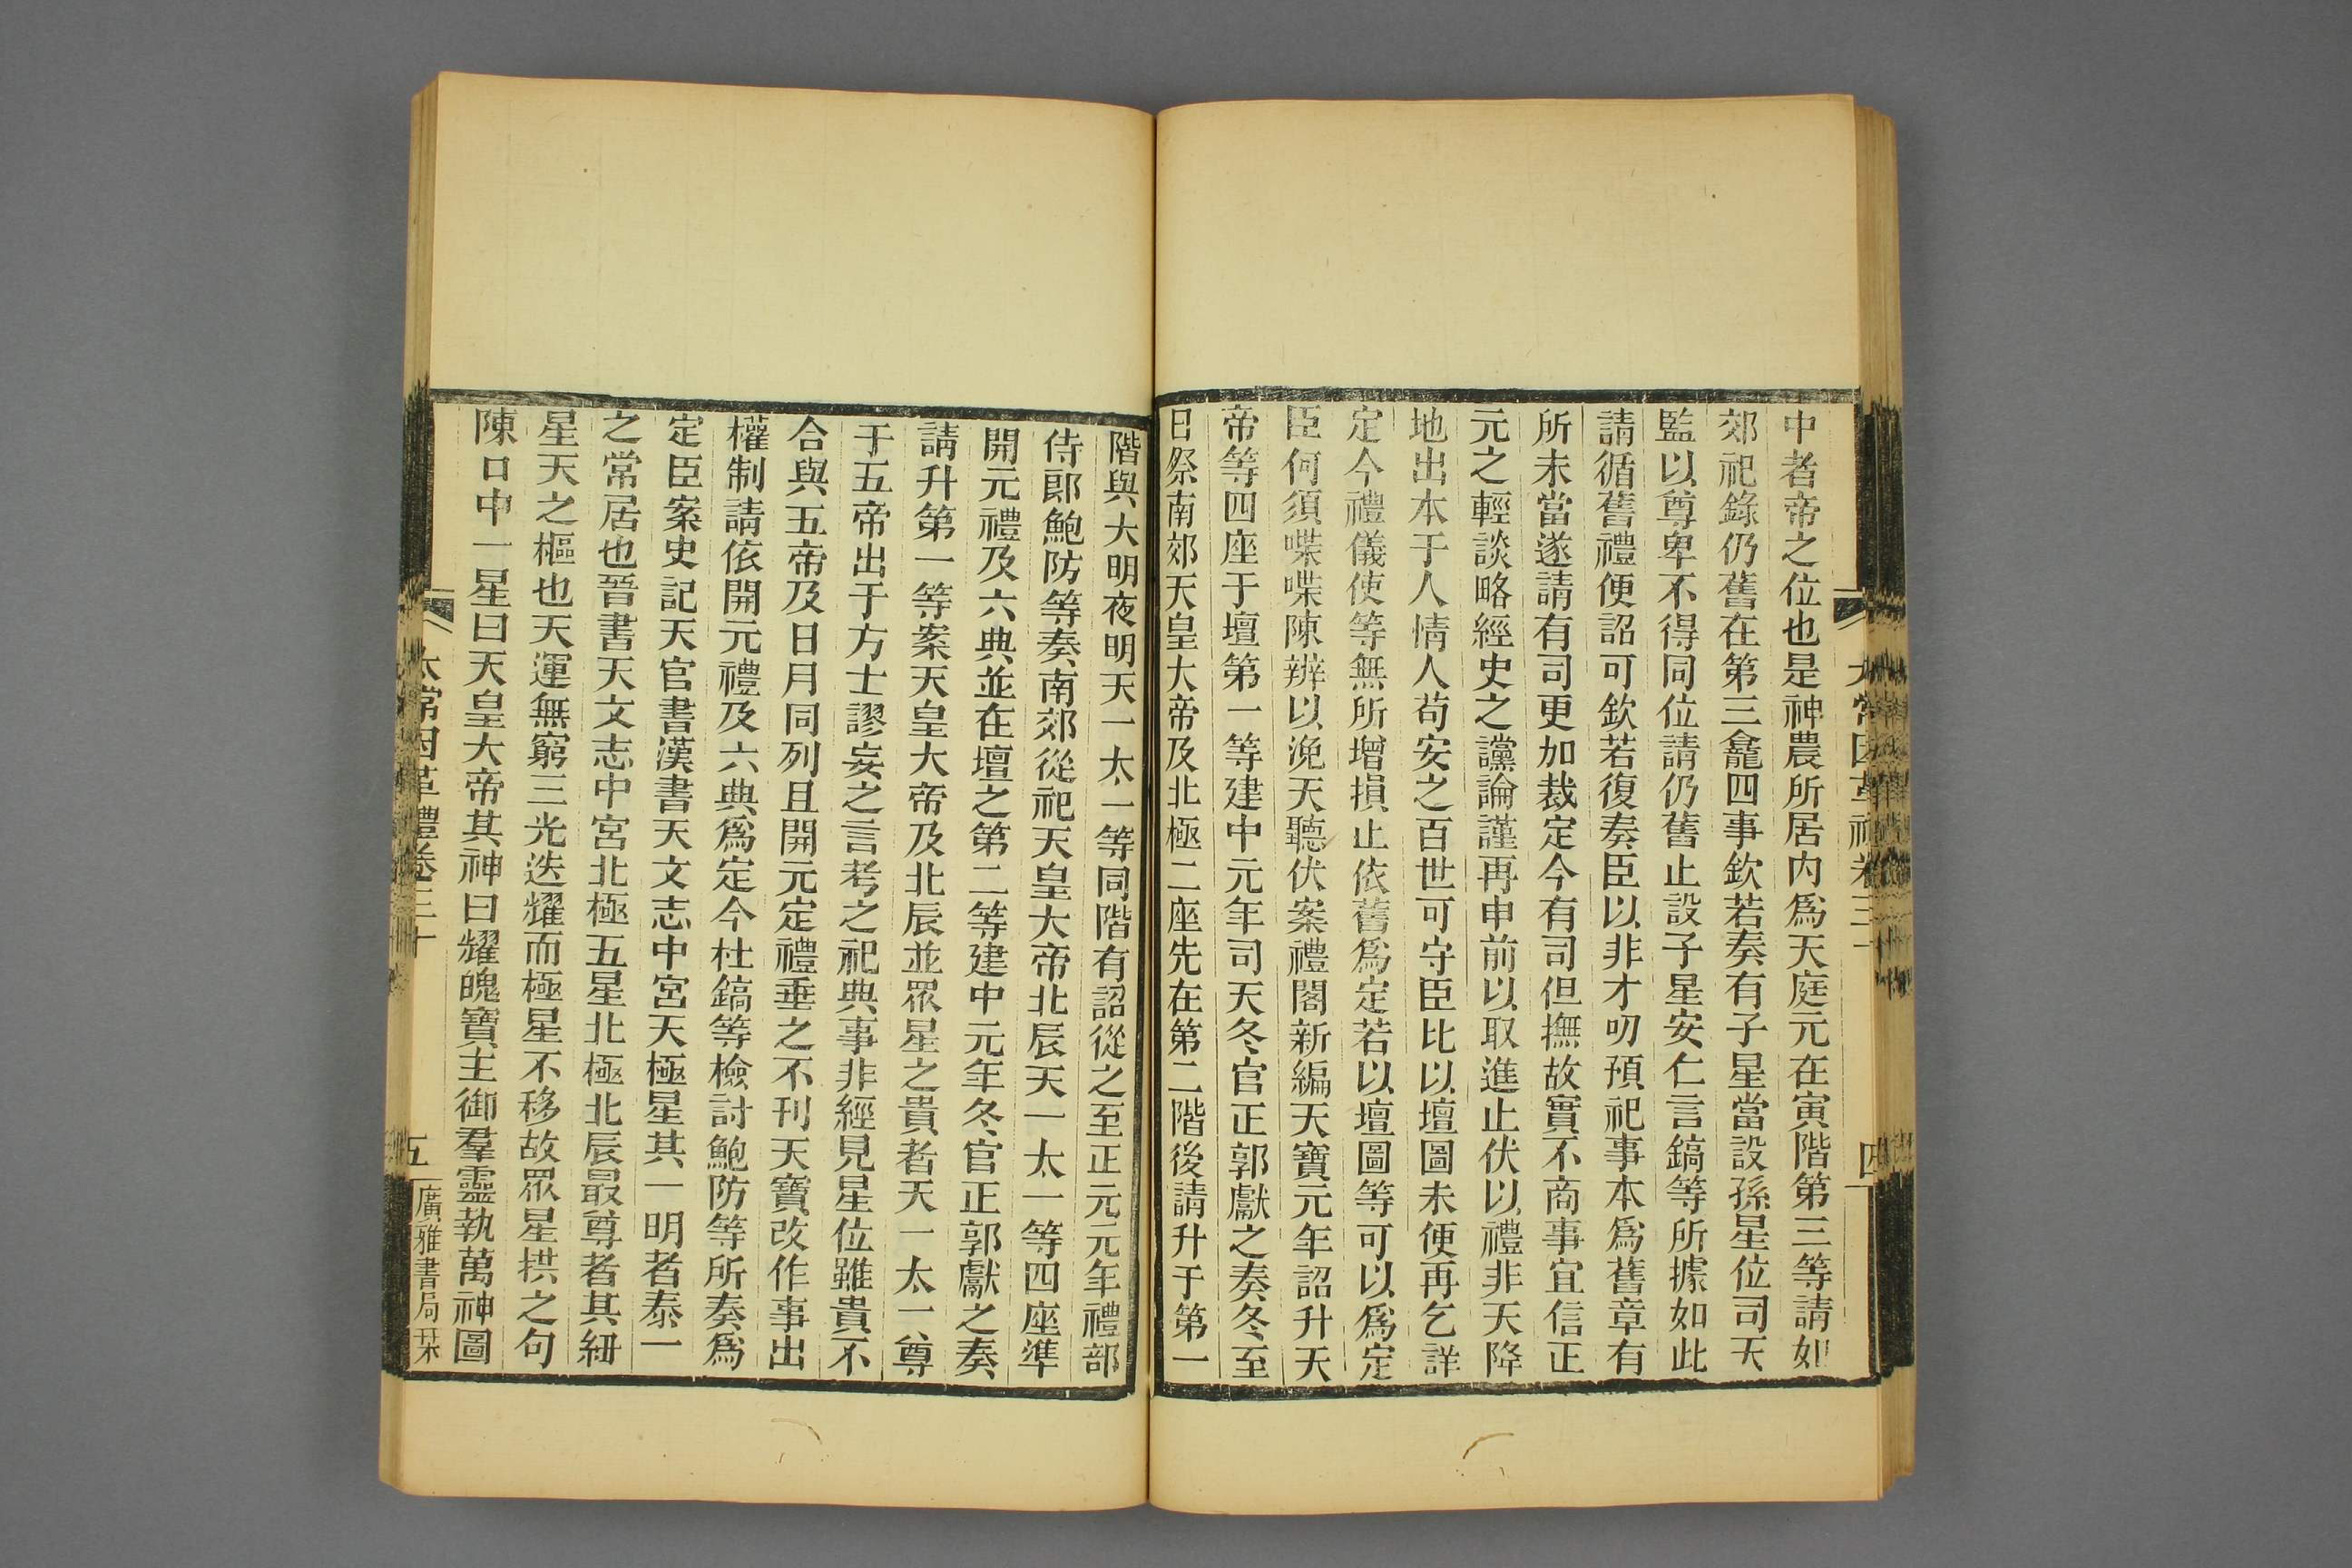 太常因革禮卷三十
四
中者帝之位也是神農所居内爲天庭元在寅階第三等請如
郊祀錄仍舊在第三龕四事欽若奏有子星當設孫星位司天
監以尊卑不得同位請仍舊止設子星安仁言鎬等所據如此
請循舊禮便詔可欽若復奏臣以非才叨預祀事本爲舊章有
所未當遂請有司更加裁定今有司但撫故實不商事宜信正
元之輕談略經史之讜論謹再申前以取進止伏以禮非天降
地出本于人情人苟安之百世可守臣比以壇圖未便再乞詳
定今禮儀使等無所增損止依舊爲定若以壇圖等可以爲定
臣何須喋喋陳辨以浼天聽伏案禮閣新編天寶元年詔升天
帝等四座于壇第一等建中元年司天冬官正郭獻之奏冬至
日祭南郊天皇大帝及北極二座先在第二階後請升于第一
階與大明夜明天一太一等同階有詔從之至正元元年禮部
侍郎鮑防等奏南郊從祀天皇大帝北辰天一太一等四座準
開元禮及六典並在壇之第二等建中元年冬官正郭獻之奏
請升第一等案天皇大帝及北辰並眾星之貴者天一太一尊
于五帝出于方士謬妄之言考之祀典事非經見星位雖貴不
合與五帝及日月同列且開元定禮垂之不刊天寶改作事出
權制請依開元禮及六典爲定今杜鎬等檢討鮑防等所奏爲
定臣案史記天官書漢書天文志中宮天極星其一明者泰一
之常居也晉書天文志中宮北極五星北極北辰最尊者其紐
星天之樞也天運無窮三光迭耀而極星不移故眾星拱之句
陳口中一星曰天皇大帝其神曰耀魄寶主御羣靈執萬神圖
太常因革禮卷三十
五
廣雅書局栞